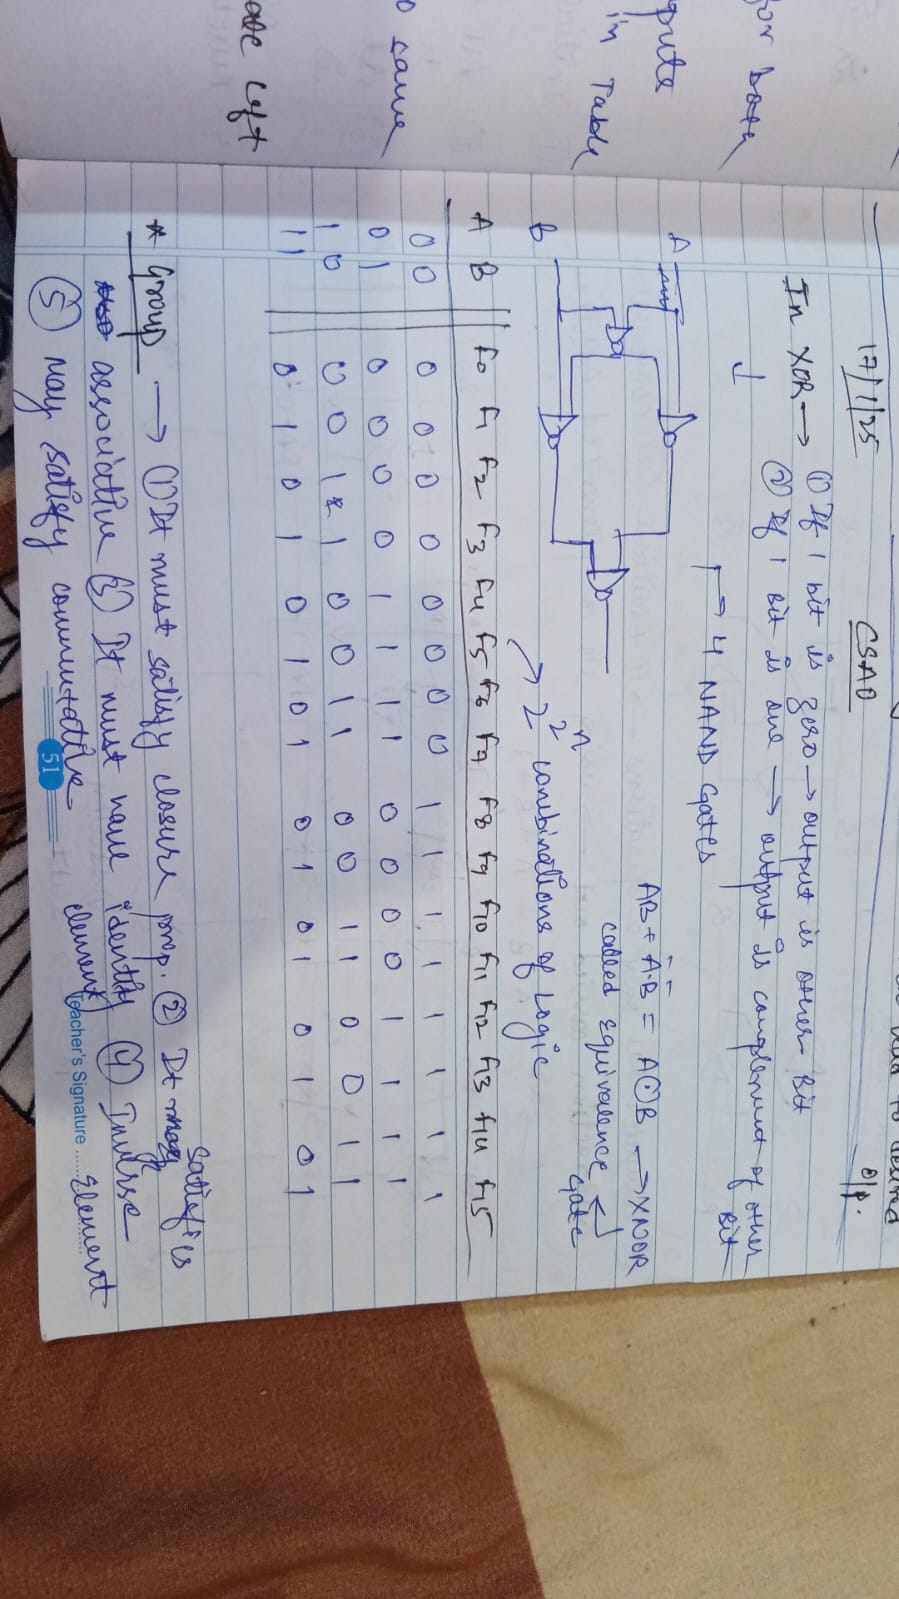 for Data
in Table
o same
left
17/1/25
CSAO
o/p.
In XOR → ① If 1 bit is zero → output is other bit
② If 1 bit is one → output is complement of other bit
4 NAND Gates
A
B
AB + A̅·B̅ = A⊙B → XNOR
called equivalence gate
2^2^n combinations of logic
A B F0 F1 F2 F3 F4 F5 F6 F7 F8 F9 F10 F11 F12 F13 F14 F15
0 0 0 0 0 0 0 0 0 0 1 1 1 1 1 1 1 1
0 1 0 0 0 0 1 1 1 1 0 0 0 0 1 1 1 1
1 0 0 0 1 1 0 0 1 1 0 0 1 1 0 0 1 1
1 1 0 1 0 1 0 1 0 1 0 1 0 1 0 1 0 1
* Group → ① It must satisfy closure prop. ② It satisfies
associative ③ It must have identity element ④ Inverse Element
⑤ may satisfy commutative
51
Teacher's Signature